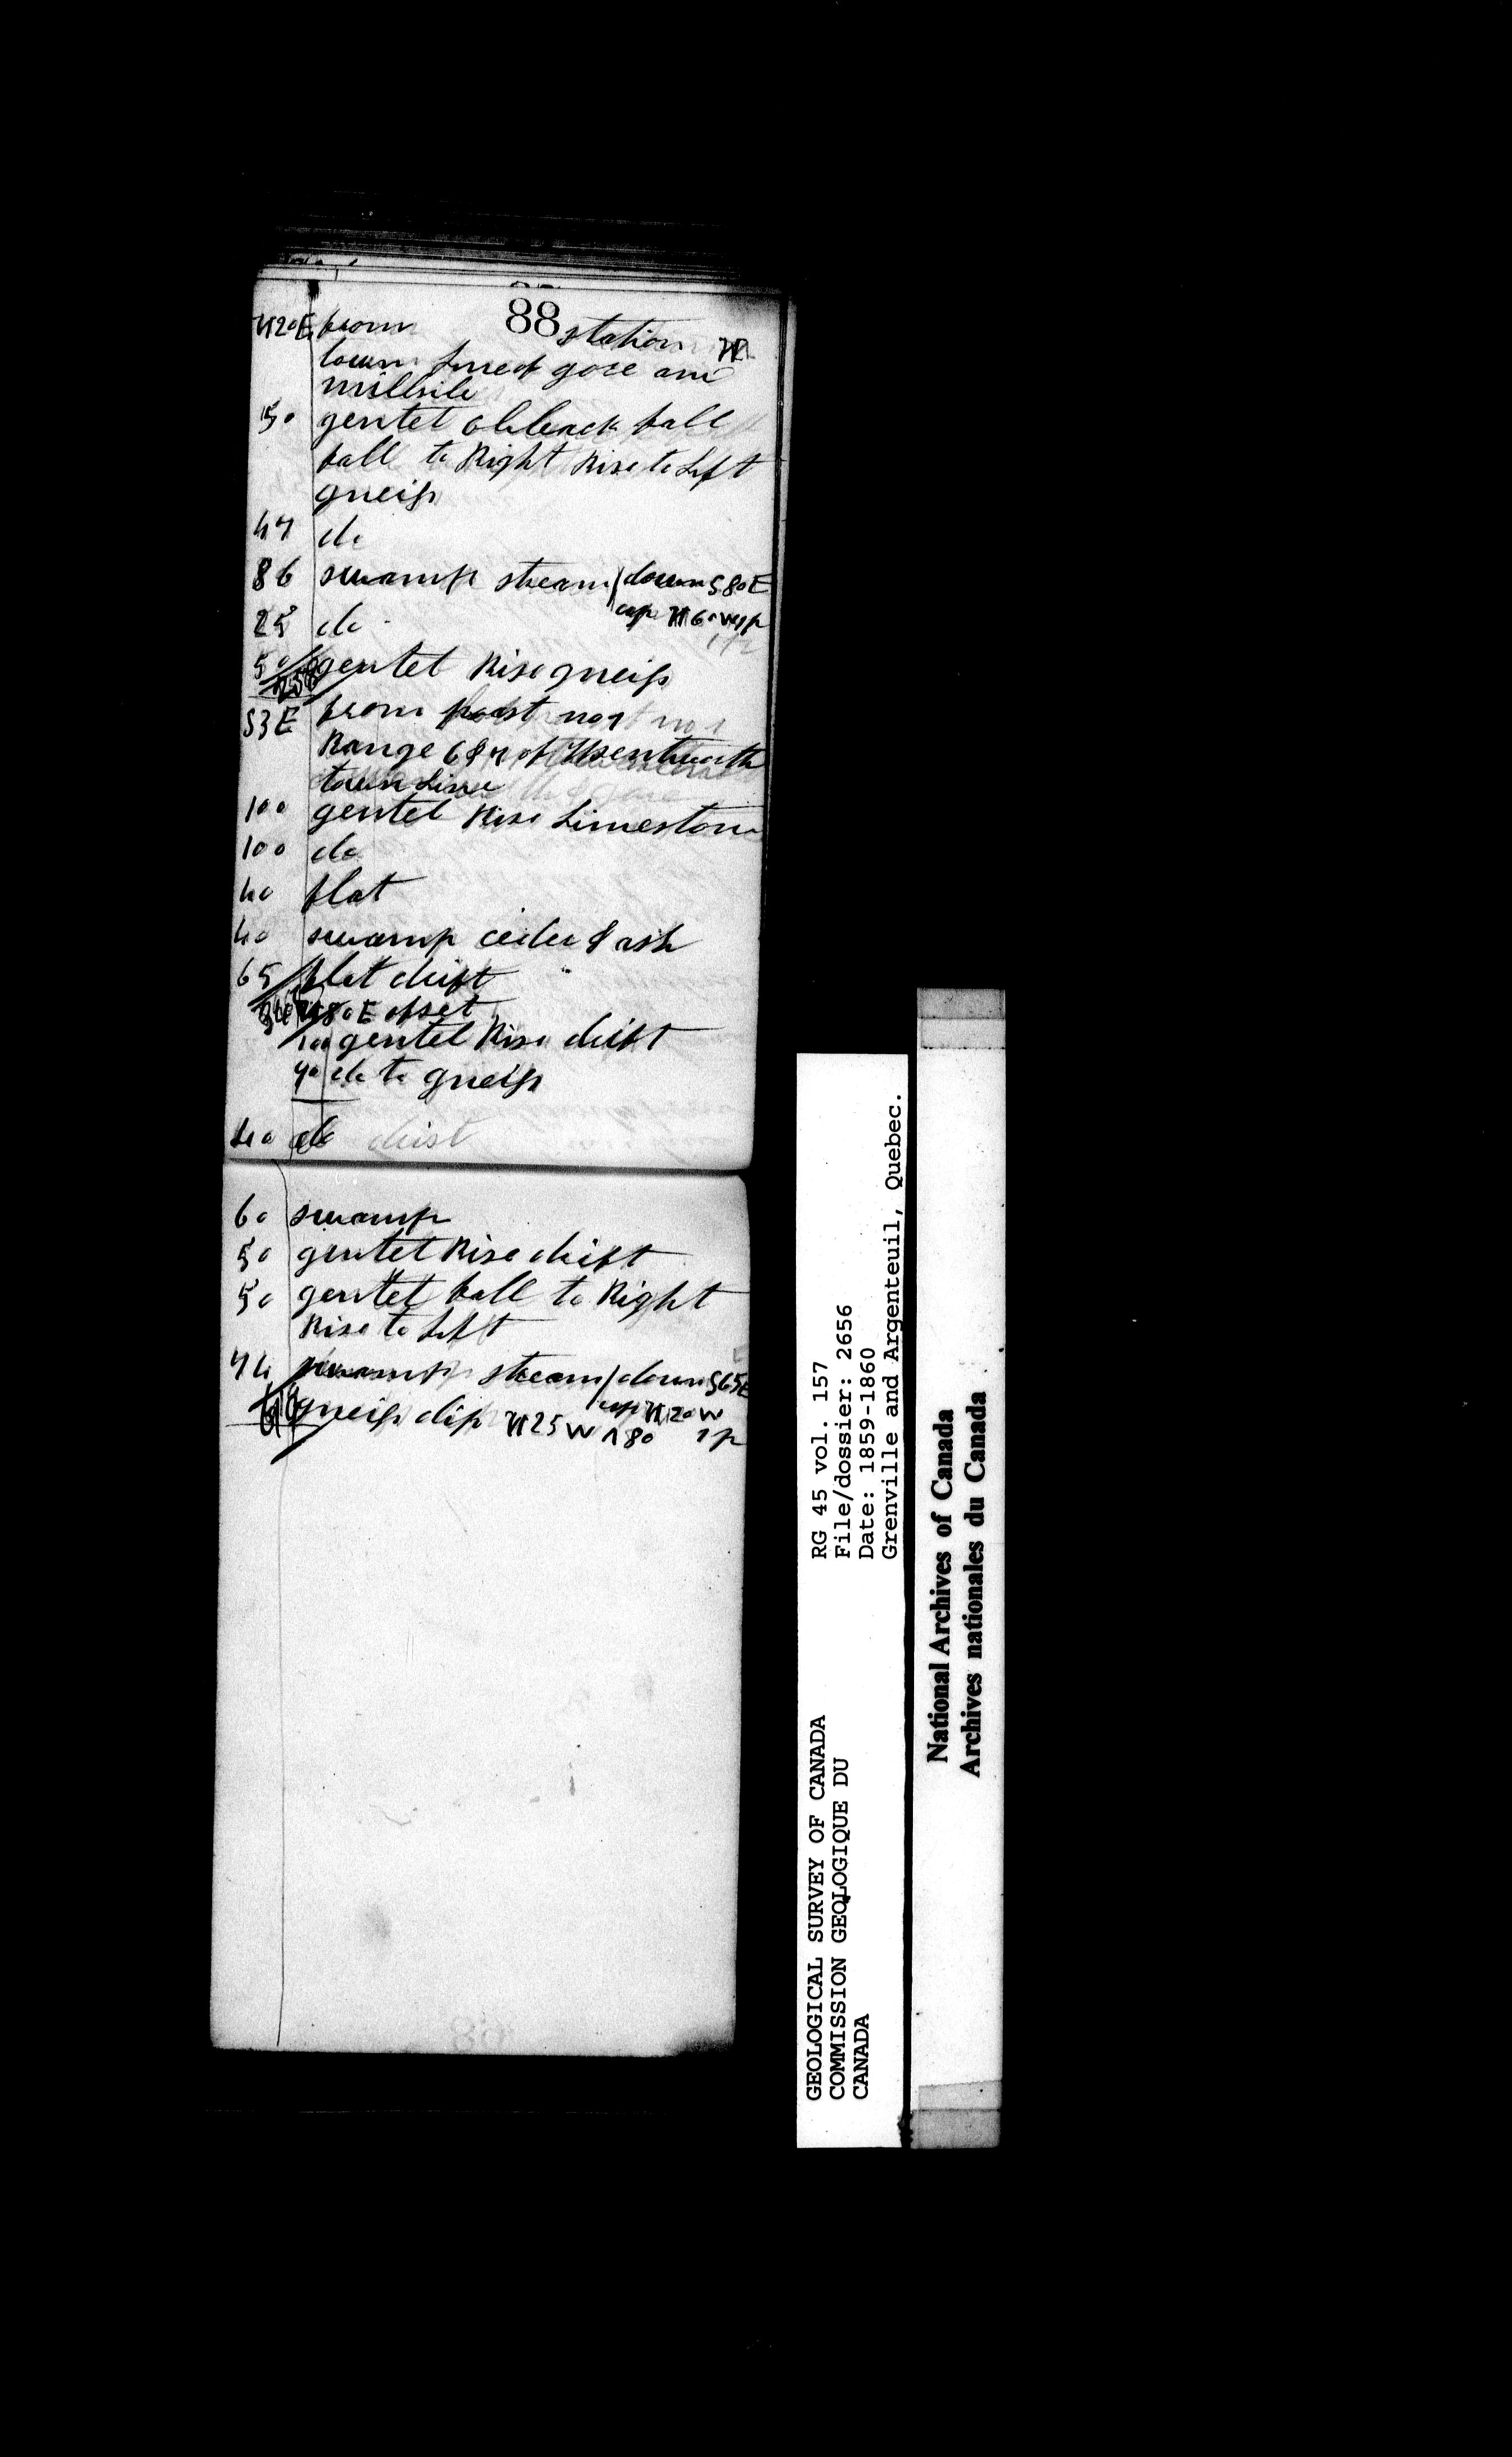 88
N20E from station
town Line of gore and
millsile
50 gentel obleack fall
fall to Right Rise to Left
gneiss
47 do
86 swamp stream / down S80E
up N60W 1p
25 do
50 gentel Rise gneiss
258
S3E from post no 1
Range 6 & 7 of Wentworth
town Line
100 gentel Rise Limestone
100 do
40 flat
40 swamp ceder & ash
65 flat drift
N80E ofset
100 gentel Rise drift
70 do to gneiss
40 do
60 swamp
50 gentel Rise drift
50 gentel fall to Right
Rise to Left
74 swamp stream / down S65E
up N20W
gneiss dip N25W Λ80 1p
RG 45 vol. 157
File/dossier: 2656
Date: 1859-1860
Grenville and Argenteuil, Quebec.
GEOLOGICAL SURVEY OF CANADA
COMMISSION GEOLOGIQUE DU
CANADA
National Archives of Canada
Archives nationales du Canada